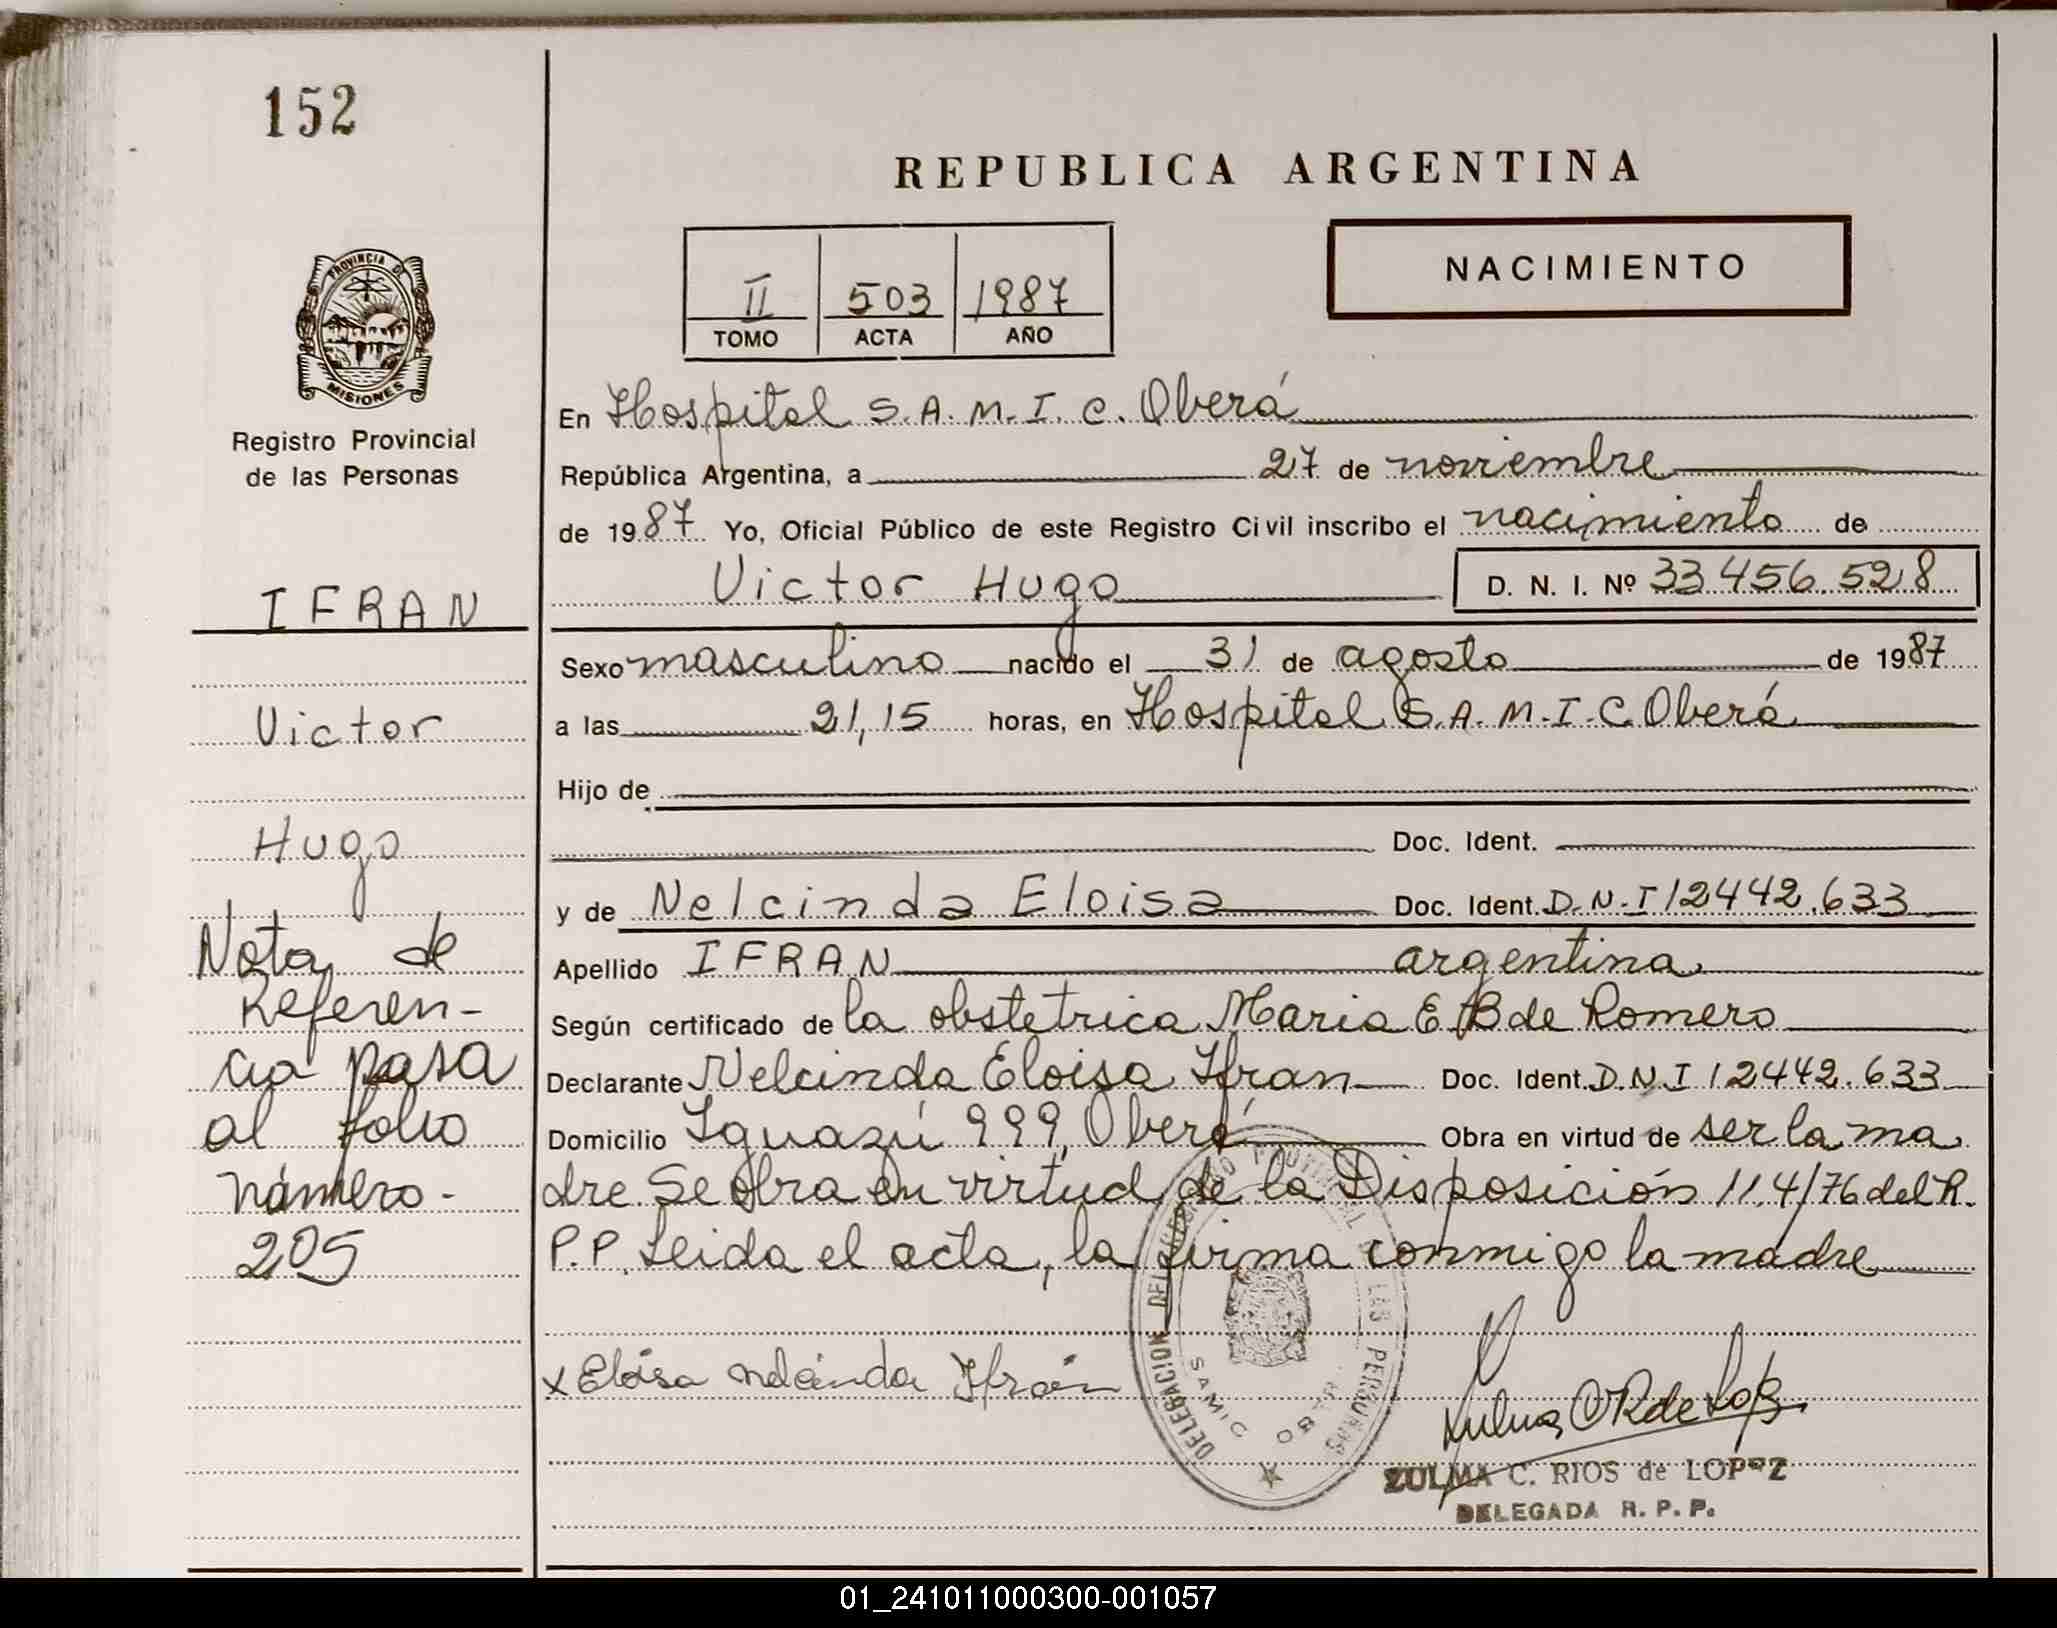 152
REPUBLICA ARGENTINA
PROVINCIA DE
MISIONES
Registro Provincial
de las Personas
II 503 1987
TOMO ACTA AÑO
NACIMIENTO
En Hospital S.A.M.I.C. Oberá
República Argentina, a 27 de noviembre
de 1987 Yo, Oficial Público de este Registro Civil inscribo el nacimiento de
Victor Hugo D. N. I. Nº 33.456.528
Sexo masculino nacido el 31 de agosto de 1987
a las 21,15 horas, en Hospital S.A.M.I.C Oberá
Hijo de
Doc. Ident.
y de Nelcinda Eloisa Doc. Ident. D.N.I 12442.633
Apellido IFRAN argentina
Según certificado de la obstetrica Maria E B de Romero
Declarante Nelcinda Eloisa Ifran Doc. Ident. D.N.I 12442.633
Domicilio Iguazú 999, Oberá Obra en virtud de ser la ma
dre Se obra en virtud de la Disposición 114/76 del R.
P.P. Leida el acta, la firma conmigo la madre
IFRAN
Victor
Hugo
Nota de
Referen-
cia pasa
al folio
número-
205
x Eloisa Ifrán
DELEGACION DEL REGISTRO PROVINCIAL DE LAS PERSONAS
SAMIC OBERA
ZULMA C. RIOS de LOPEZ
DELEGADA R. P. P.
01_241011000300-001057